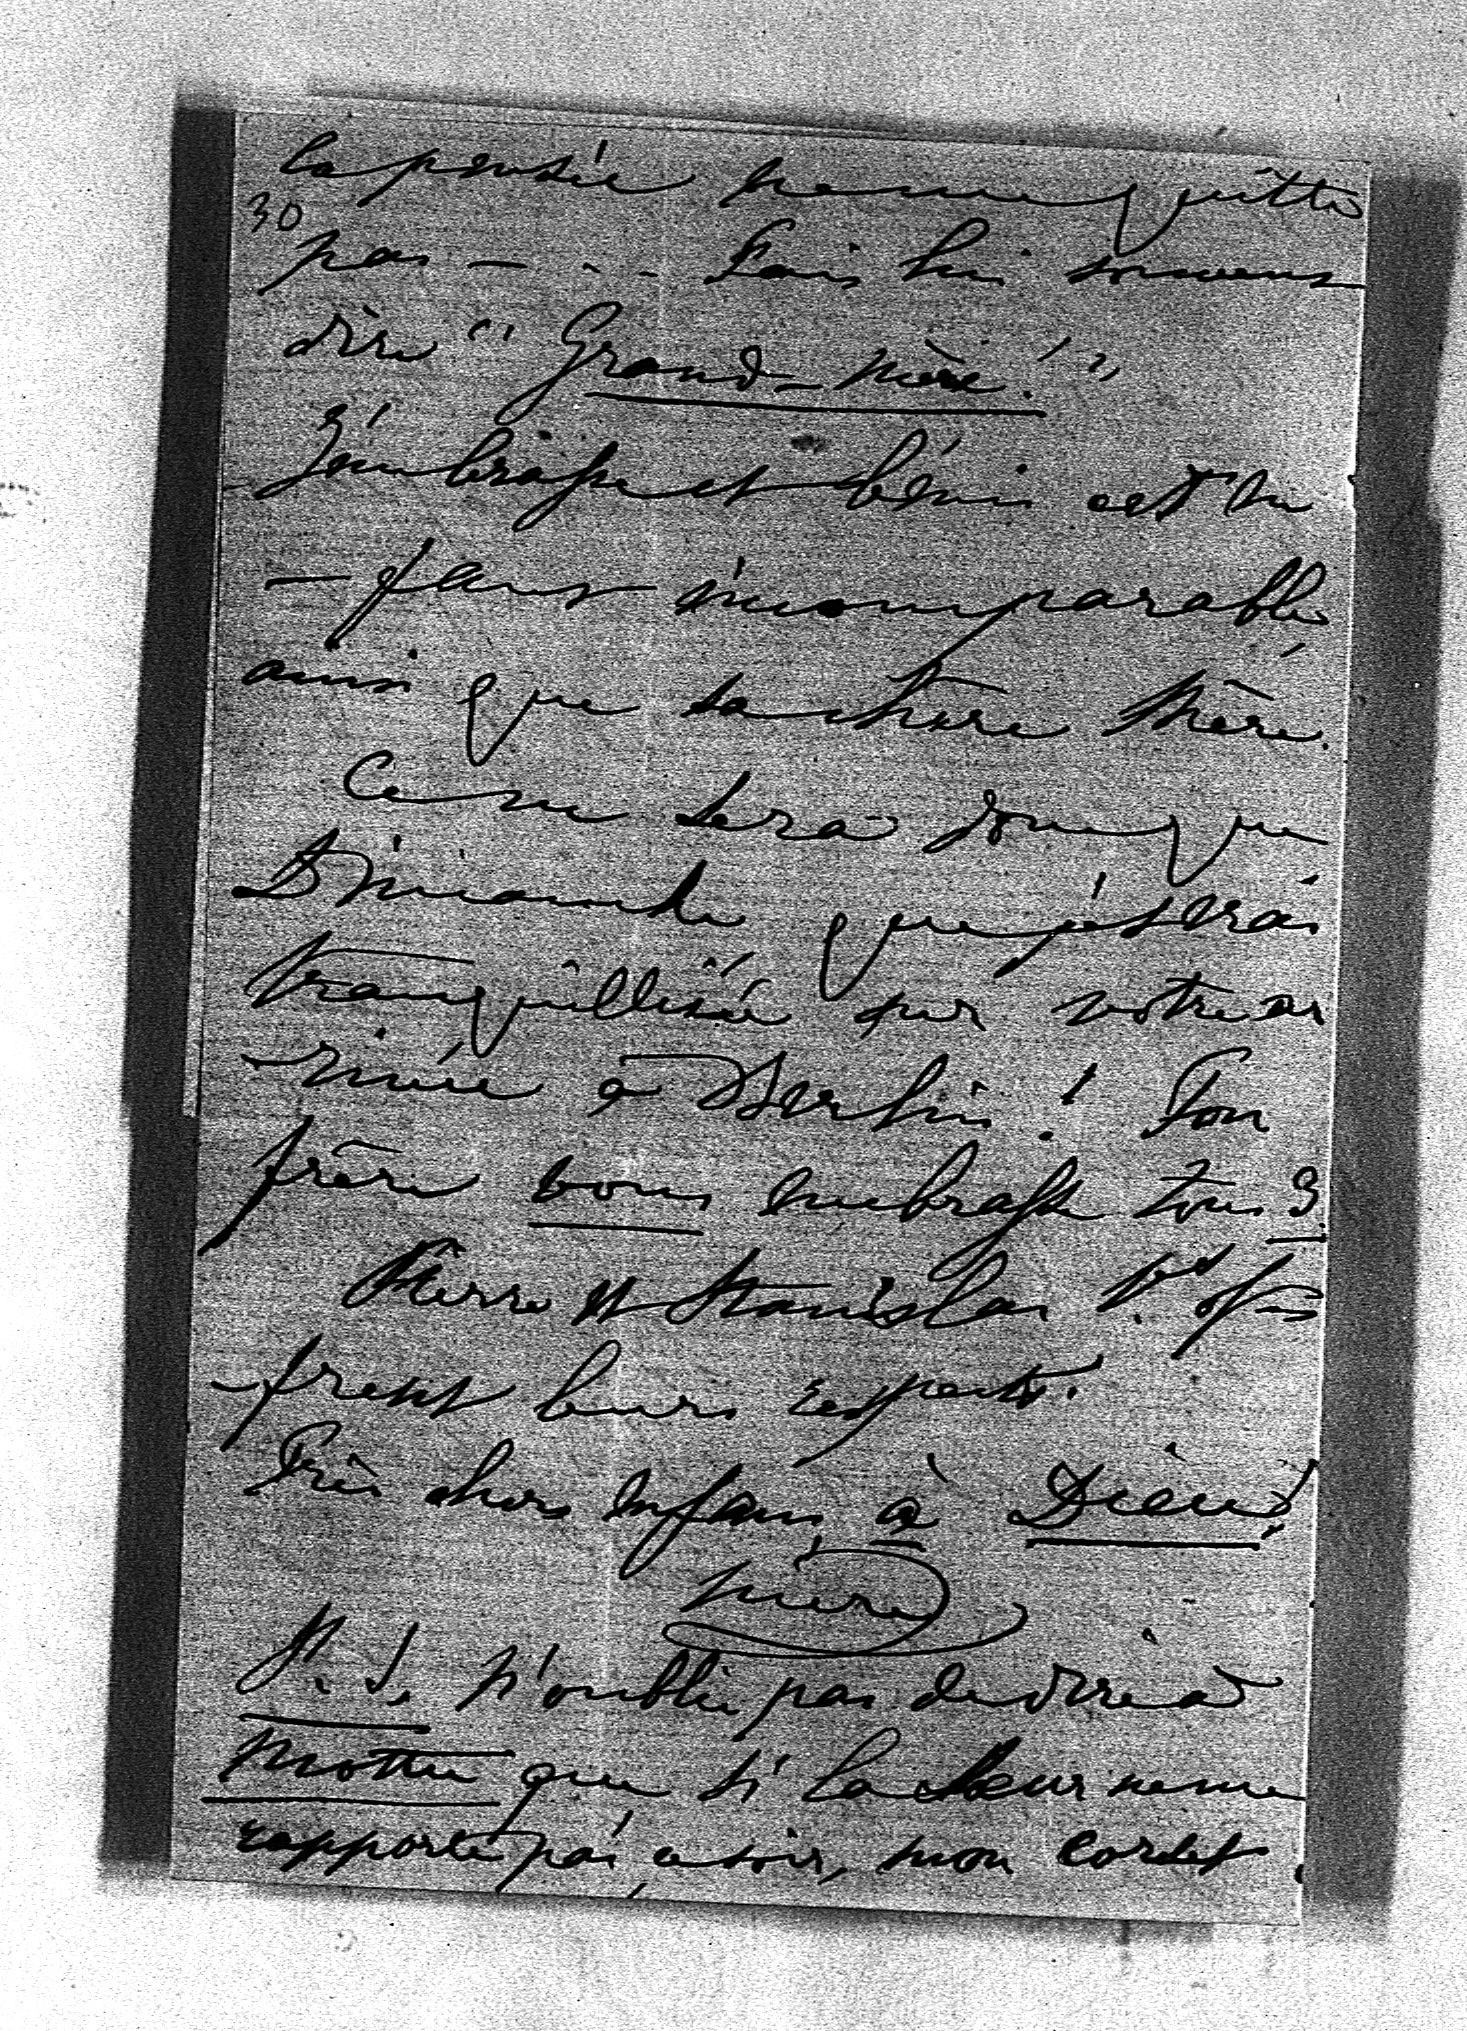 la pensée ne me quitte
30
pas - - - - Fais lui souvent
dire " Grand-mère ! "
J'embrasse et bénis cet en
- fant incomparable
ainsi que sa chère Mère.
Ce ne sera donc que
Dimanche que je serai
tranquillisée par votre ar
- rivée à Berlin ! Ton
frère vous embrasse tous 3.
Pierre et Stanislas P. of
- frent leurs respects.
Très chers Enfans, à Dieu !
Mère
P. S. N'oublie pas de dire à
que si la Sœur ne me
rapporte pas ce soir, mon corset